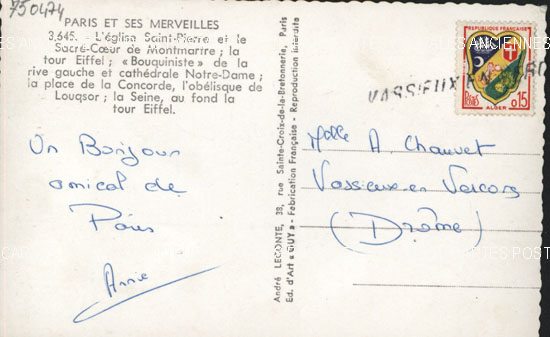 750474
PARIS ET SES MERVEILLES
3,645. - L'église Saint-Pierre et le
Sacré-Cœur de Montmartre ; la
tour Eiffel ; « Bouquiniste » de la
rive gauche et cathédrale Notre-Dame ;
la place de la Concorde, l'obélisque de
Louqsor ; la Seine, au fond la
tour Eiffel.
Un Bonjour
amical de
Paris
Annie
André LECONTE, 38, rue Sainte-Croix-de-la-Bretonnerie, Paris
Ed. d'Art « GUY » - Fabrication Française - Reproduction interdite
ANCIENNES
VASSIEUX EN VERCO
Postes
0,15
ALGER
Melle A. Chauvet
Vassieux-en Vercors
(Drôme)